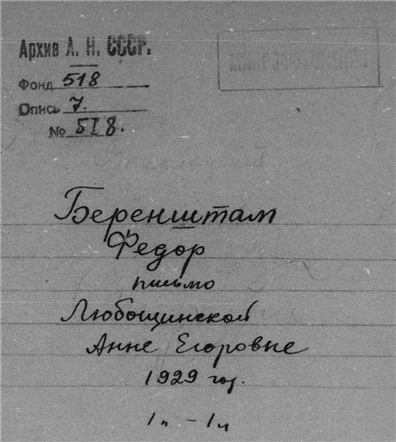 Архив А. Н. СССР.
Фонд 518
Опись 7.
№ 518.
Беренштам
Федор
письмо
Любощинской
Анне Егоровне
1929 год.
1п - 1л